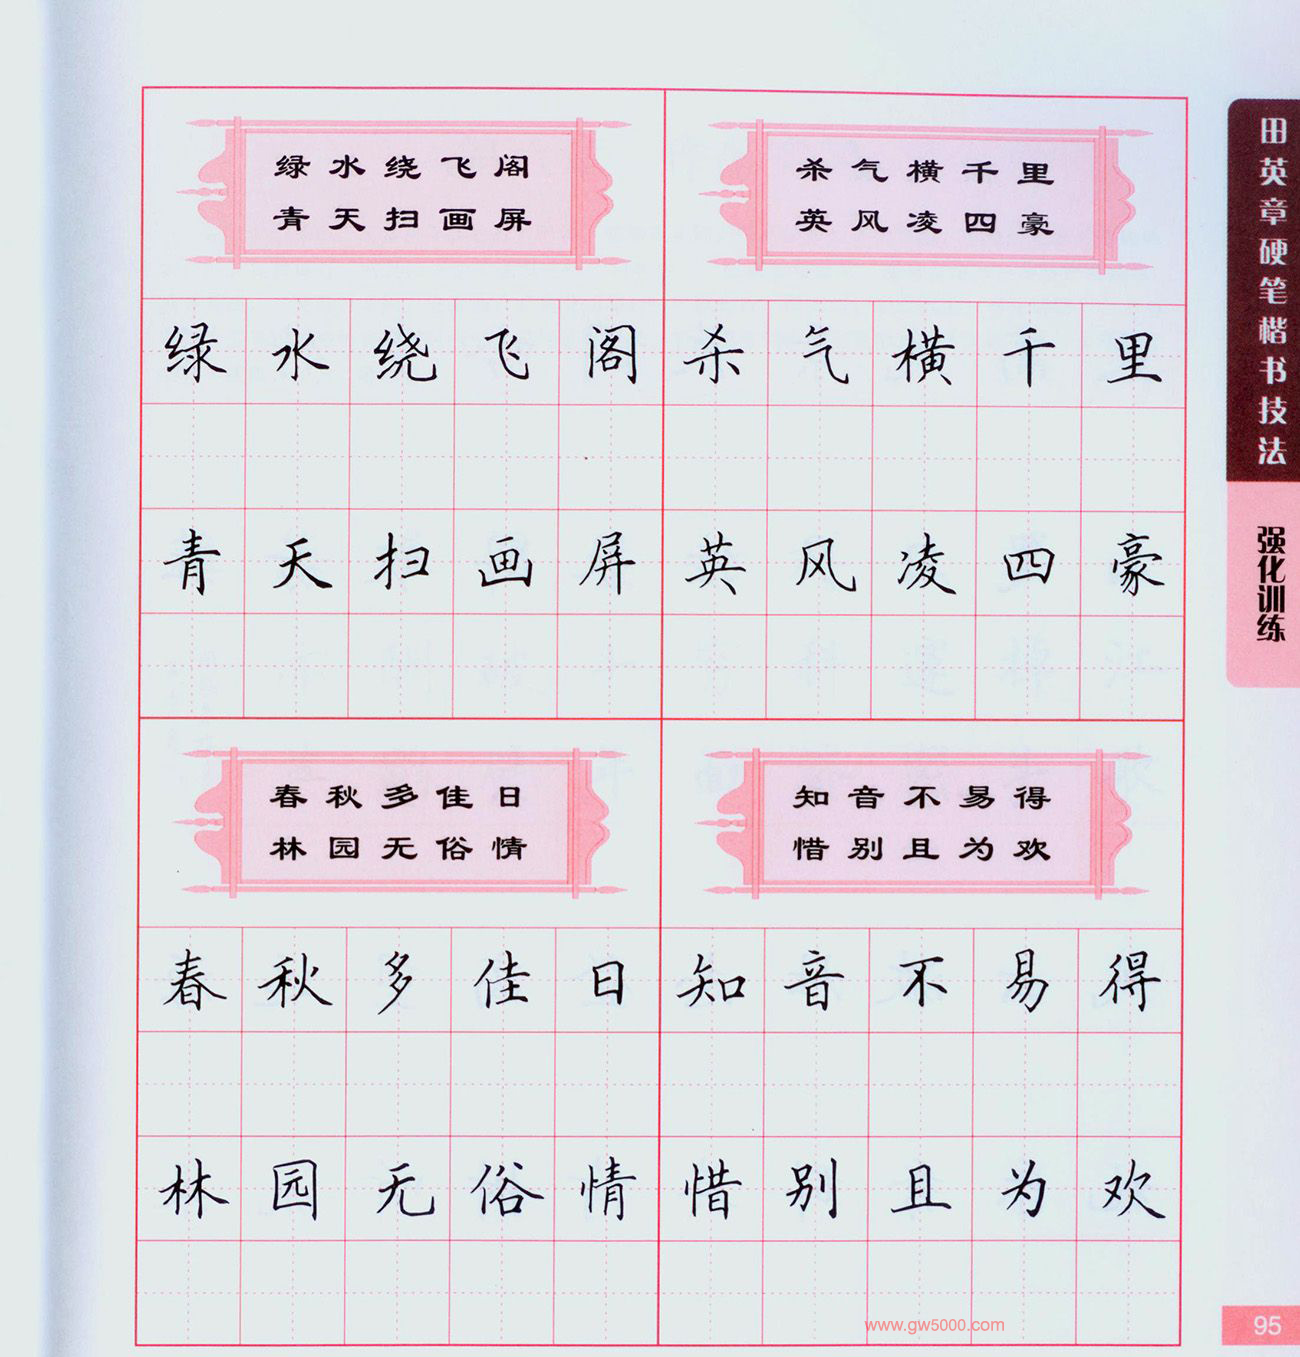 绿水绕飞阁
青天扫画屏
杀气横千里
英风凌四豪
绿水绕飞阁
杀气横千里
青天扫画屏
英风凌四豪
春秋多佳日
林园无俗情
知音不易得
惜别且为欢
春秋多佳日
知音不易得
林园无俗情
惜别且为欢
田英章硬笔楷书技法
强化训练
www.gw5000.com
95